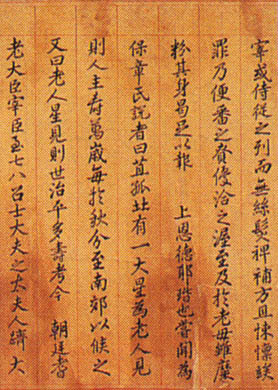 宰或侍從之列而無絲髮裨補方且悚懔竢
罪乃便蕃之賚優洽之渥至及於老母雖麋
粉其身曷足以報 上恩德耶也嘗聞為
保章氏說者曰直弧北有一大星為老人見
則人主壽萬歲每於秋分至南郊以候之
又曰老人星見則世治平多壽考今 朝廷耆
老大臣宰臣至七八召士大夫之太夫人躋大